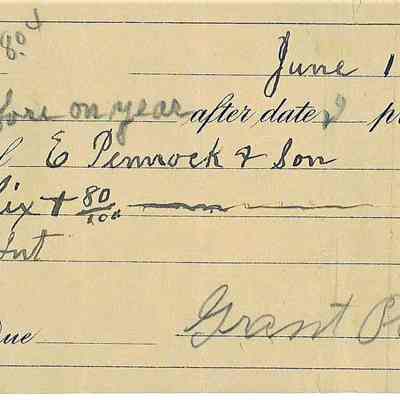 80
June 1
fore on year after date I p
E Pennock & Son
Six + 80/100
Int
Due
Grant P